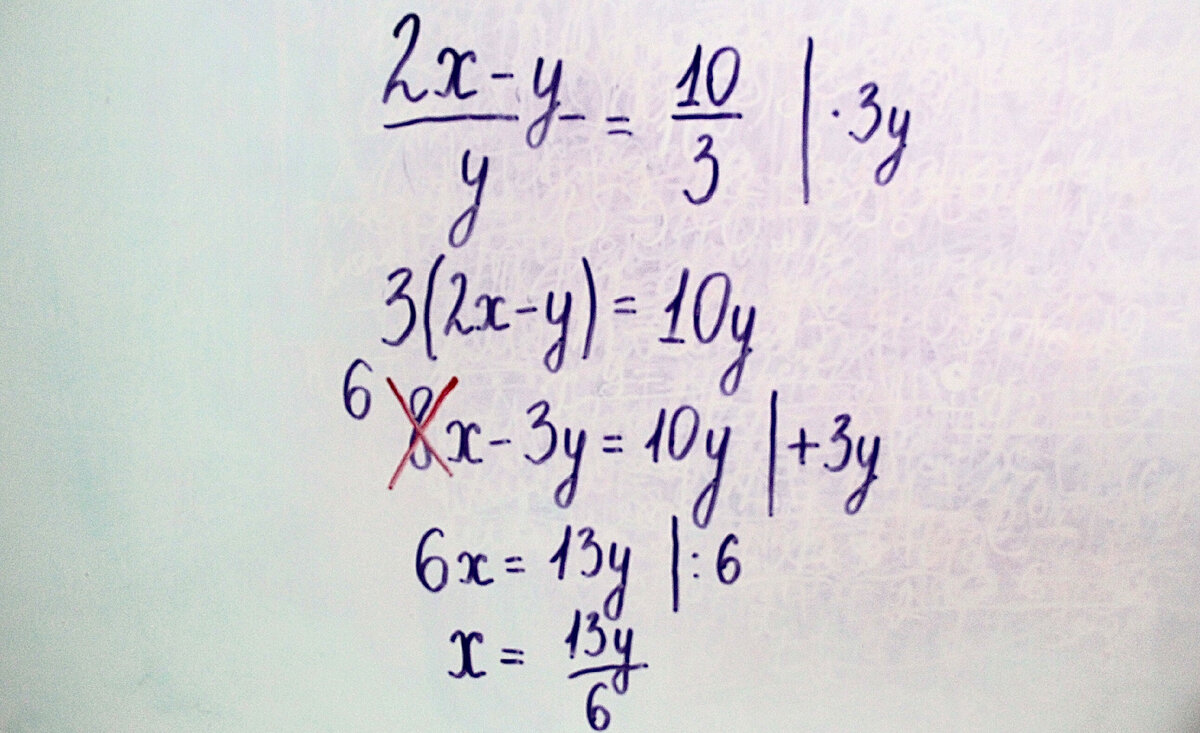 (2x-y)/y = 10/3 | · 3y
3(2x-y) = 10y
6 8x - 3y = 10y | +3y
6x = 13y | : 6
x = 13y/6